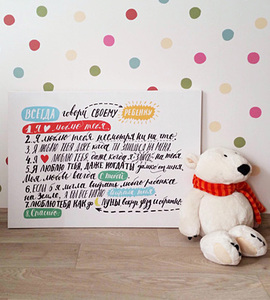 ВСЕГДА говори СВОЕМУ РЕБЕНКУ
1. Я люблю тебя.
2. Я люблю тебя несмотря ни на что.
3. Я люблю тебя даже когда ты злишься на меня
4. Я люблю тебя даже когда я злюсь на тебя
5. Я люблю тебя, даже когда ты далеко от меня.
Моя любовь всегда с тобой.
6. Если б я могла выбрать любого ребенка
на Земле, я бы всё равно выбрала тебя
7. Люблю тебя как до луны вокруг звёзд и обратно.
8. Спасибо.